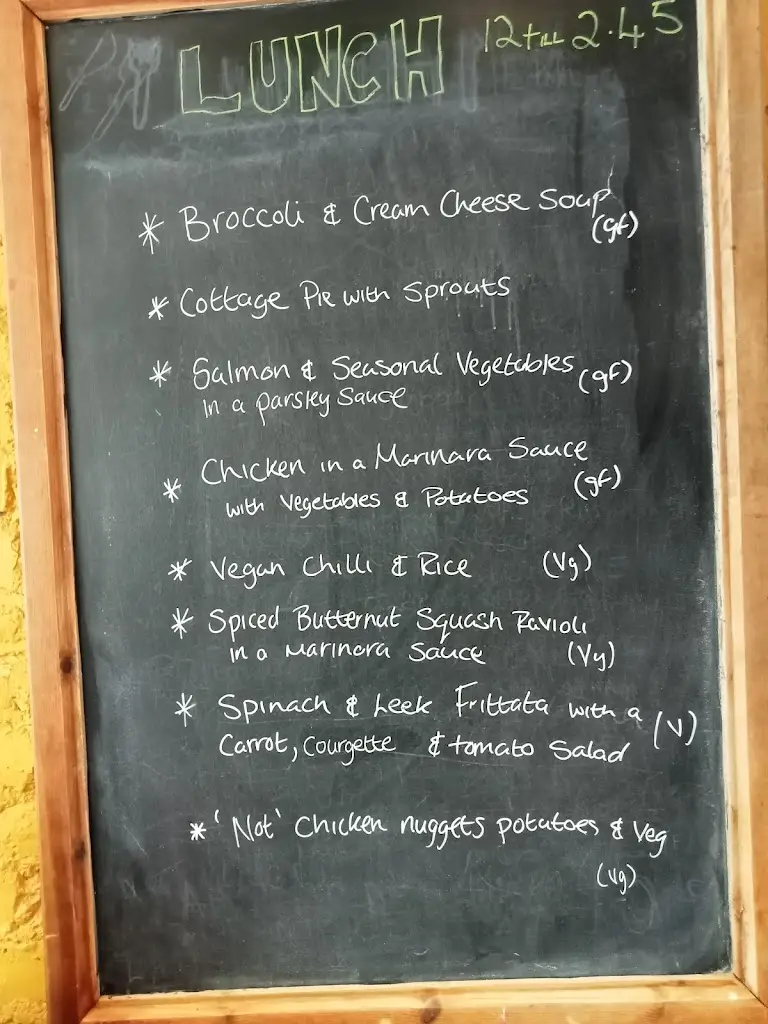 LUNCH 12 till 2.45
* Broccoli & Cream Cheese Soup
(gf)
* Cottage Pie with Sprouts
* Salmon & Seasonal Vegetables (gf)
in a parsley Sauce
* Chicken in a Marinara Sauce
with Vegetables & Potatoes (gf)
* Vegan Chilli & Rice (Vg)
* Spiced Butternut Squash Ravioli
in a Marinara Sauce (Vg)
* Spinach & Leek Frittata with a (V)
Carrot, Courgette & tomato Salad
* 'Not' Chicken nuggets potatoes & Veg
(Vg)